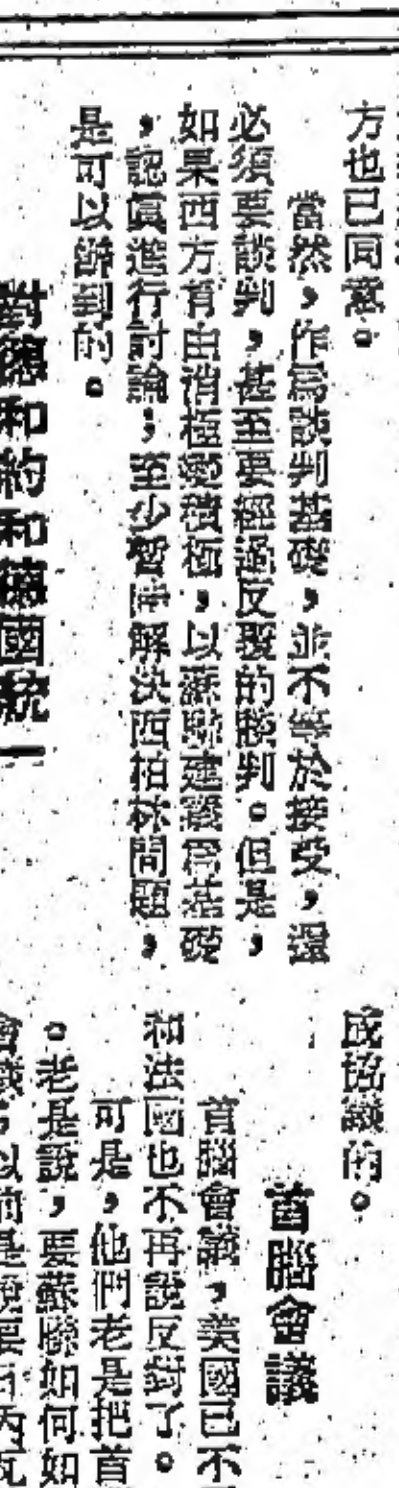 方也已同意。
當然，作爲談判基礎，並不等於接受，還
必須要談判，甚至要經過反覆的談判。但是，
如果西方肯由消極變積極，以蘇聯建議爲基礎
，認眞進行討論，至少暫時解決西柏林問題，
是可以辦到的。
對德和約和德國統一
成協議的。
首腦會議
首腦會議，美國已不
和法國也不再說反對了。
可是，他們老是把首
。老是說，要蘇聯如何如
會議，以前是說要日內瓦